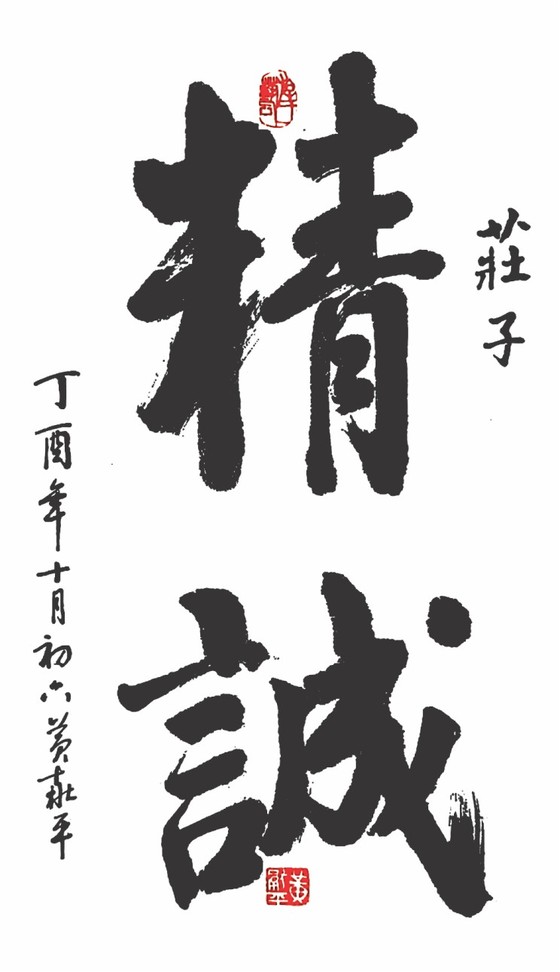 莊子
精誠
丁酉年十月初六黃平